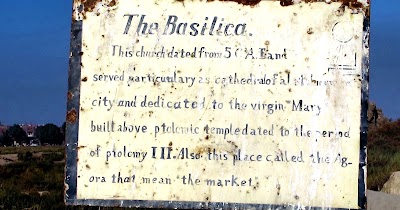 The Basilica.
This church dated from 5 C A. D and
served particulary as cathedral of all
city and dedicated to the virgin Mary
built above ptolemic temple dated to the period
of ptolomy III. Also this place called the Ag-
ora that mean the market